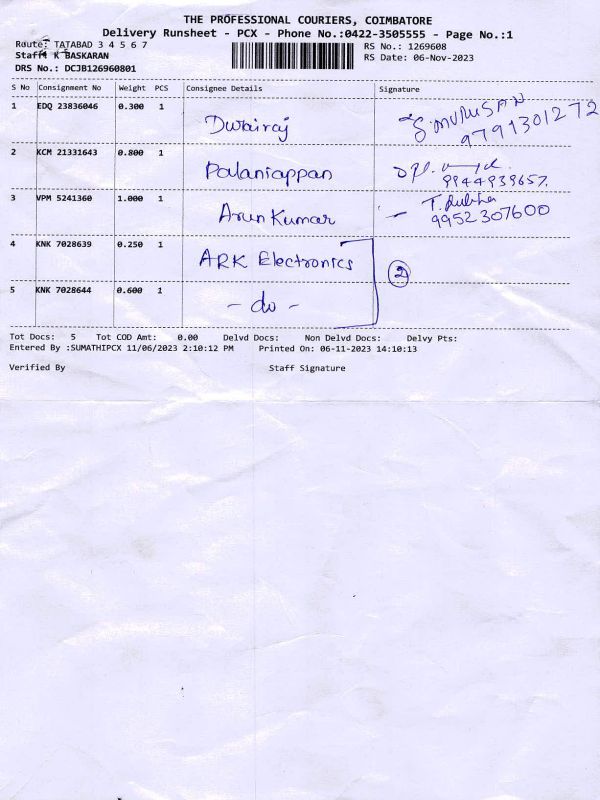 THE PROFESSIONAL COURIERS, COIMBATORE
Delivery Runsheet - PCX - Phone No.:0422-3505555 - Page No.:1
Route: TATABAD 3 4 5 6 7
RS No.: 1269608
Staff: K BASKARAN
RS Date: 06-Nov-2023
DRS No.: DCJB126960801
S No Consignment No Weight PCS Consignee Details Signature
1 EDQ 23836046 0.300 1 Dwairaj S. MURUSAN
9791301272
2 KCM 21331643 0.800 1 Palaniappan
9944939657.
3 VPM 5241360 1.000 1 Arun Kumar - T.
9952307600
4 KNK 7028639 0.250 1 ARK Electronics
2
5 KNK 7028644 0.600 1 - do -
Tot Docs: 5 Tot COD Amt: 0.00 Delvd Docs: Non Delvd Docs: Delvy Pts:
Entered By :SUMATHIPCX 11/06/2023 2:10:12 PM Printed On: 06-11-2023 14:10:13
Verified By Staff Signature